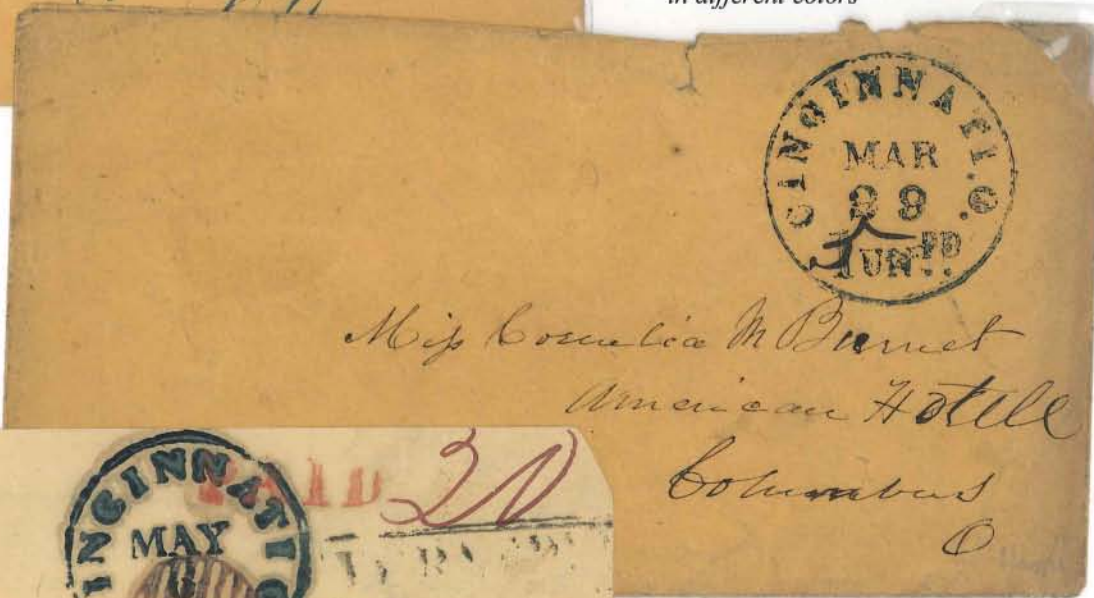 in different colors
CINCINNATI. O.
MAR
29
Miss Cornelia M Burnet
American Hotell
Columbus
O
PAID 20
CINCINNATI O
MAY